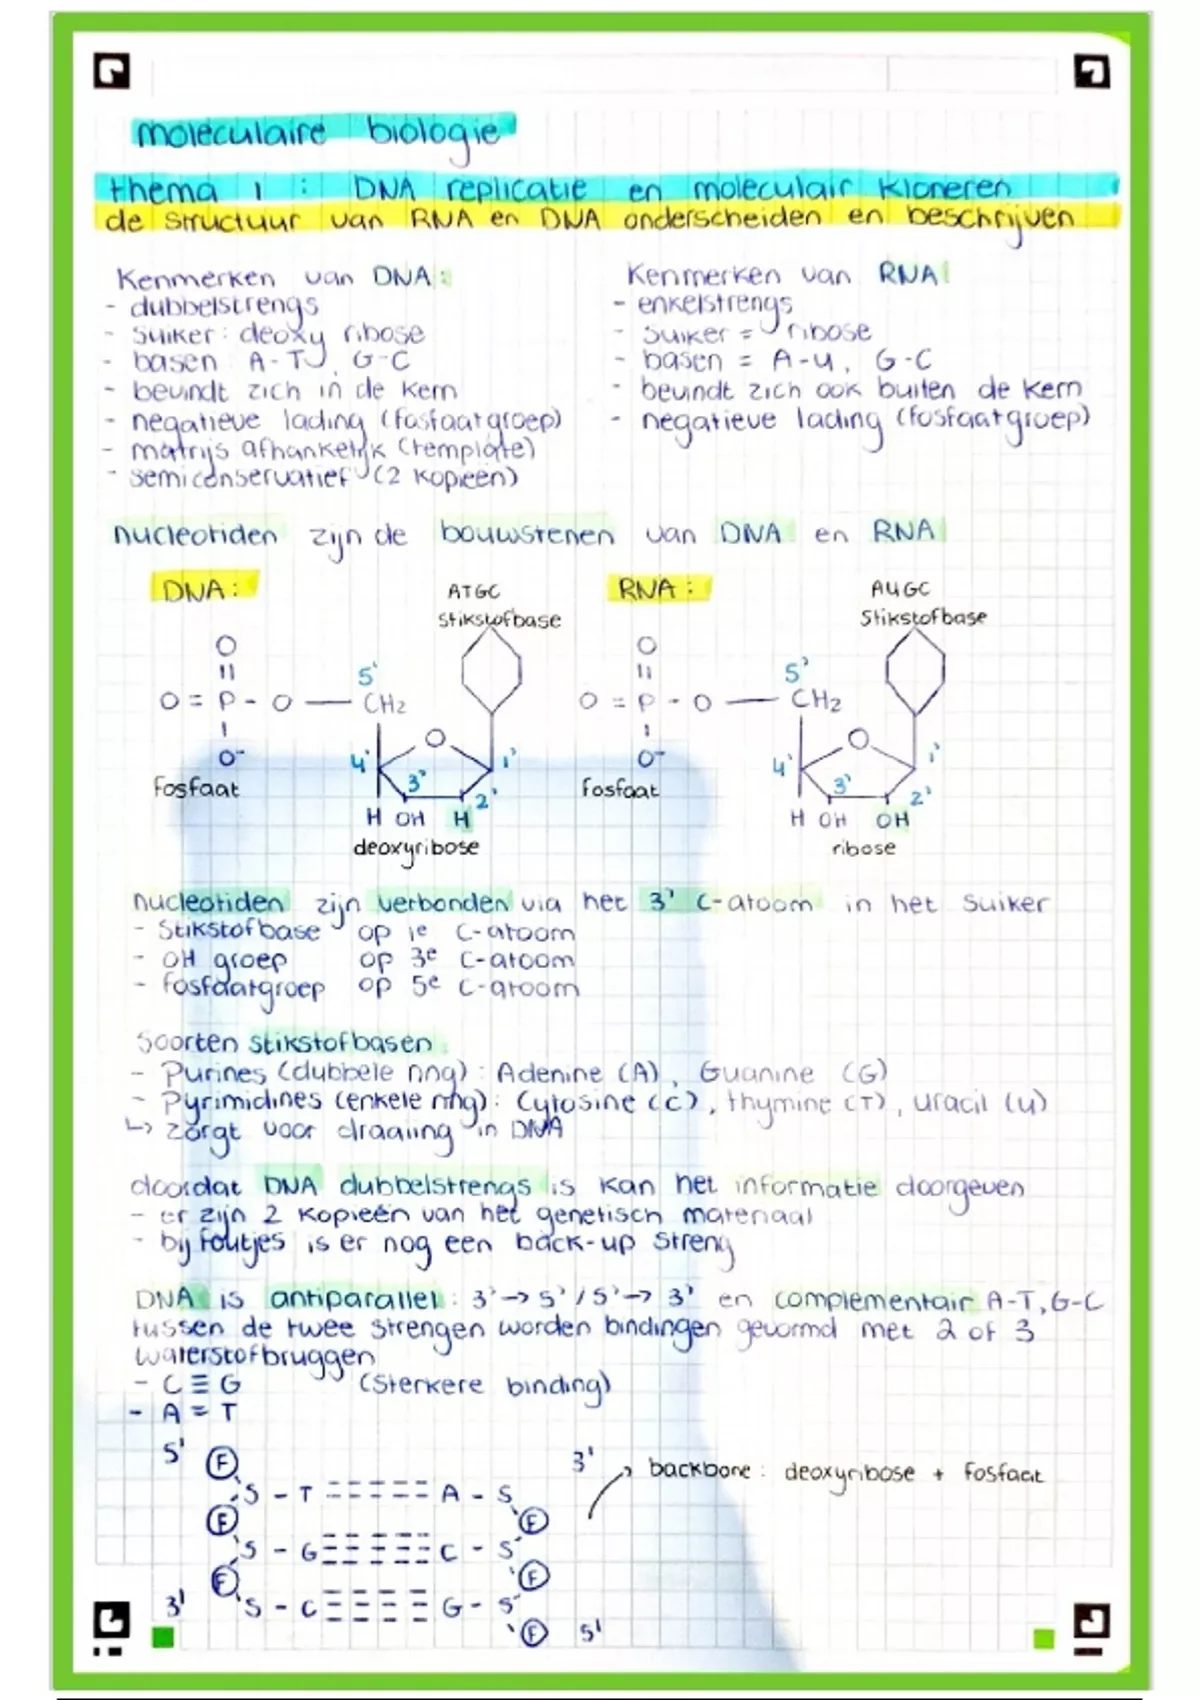 moleculaire biologie
thema 1 : DNA replicatie en moleculair kloneren
de structuur van RNA en DNA onderscheiden en beschrijven
Kenmerken van DNA:
- dubbelstrengs
- suiker: deoxy ribose
- basen A-T, G-C
- bevindt zich in de kern
- negatieve lading (fosfaatgroep)
- matrijs afhankelijk (template)
- semiconservatief (2 kopieën)
Kenmerken van RNA
- enkelstrengs
- suiker = ribose
- basen = A-U, G-C
- bevindt zich ook buiten de kern
- negatieve lading (fosfaatgroep)
nucleotiden zijn de bouwstenen van DNA en RNA
DNA:
ATGC
stikstofbase
O
O = P - O — CH2
5'
O
4' 3' 2' 1'
O-
fosfaat
H OH H
deoxyribose
RNA:
AUGC
Stikstofbase
O
O = P - O — CH2
5'
O
4' 3' 2' 1'
O-
fosfaat
H OH OH
ribose
nucleotiden zijn verbonden via het 3' C-atoom in het suiker
- Stikstofbase op 1e C-atoom
- OH groep op 3e C-atoom
- fosfaatgroep op 5e C-atoom
Soorten stikstofbasen
- Purines (dubbele ring): Adenine (A), Guanine (G)
- Pyrimidines (enkele ring): Cytosine (C), thymine (T), uracil (U)
↳ zorgt voor draaiing in DNA
doordat DNA dubbelstrengs is kan het informatie doorgeven
- er zijn 2 kopieën van het genetisch materiaal
- bij foutjes is er nog een back-up streng
DNA is antiparallel: 3'→ 5' / 5'→ 3' en complementair A-T, G-C
tussen de twee strengen worden bindingen gevormd met 2 of 3
waterstofbruggen
- C ≡ G (Sterkere binding)
- A = T
5' F 3'
backbone: deoxyribose + fosfaat
S - T A - S
F F
S - G C - S
F F
3' S - C G - S
F 5'